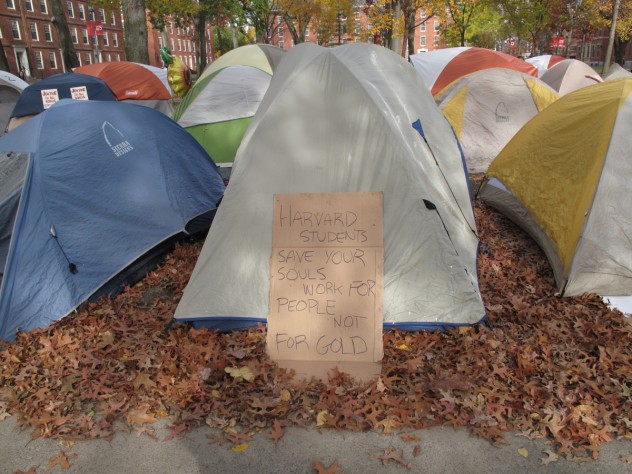 HARVARD
STUDENTS
SAVE YOUR
SOULS
WORK FOR
PEOPLE
NOT
FOR GOLD